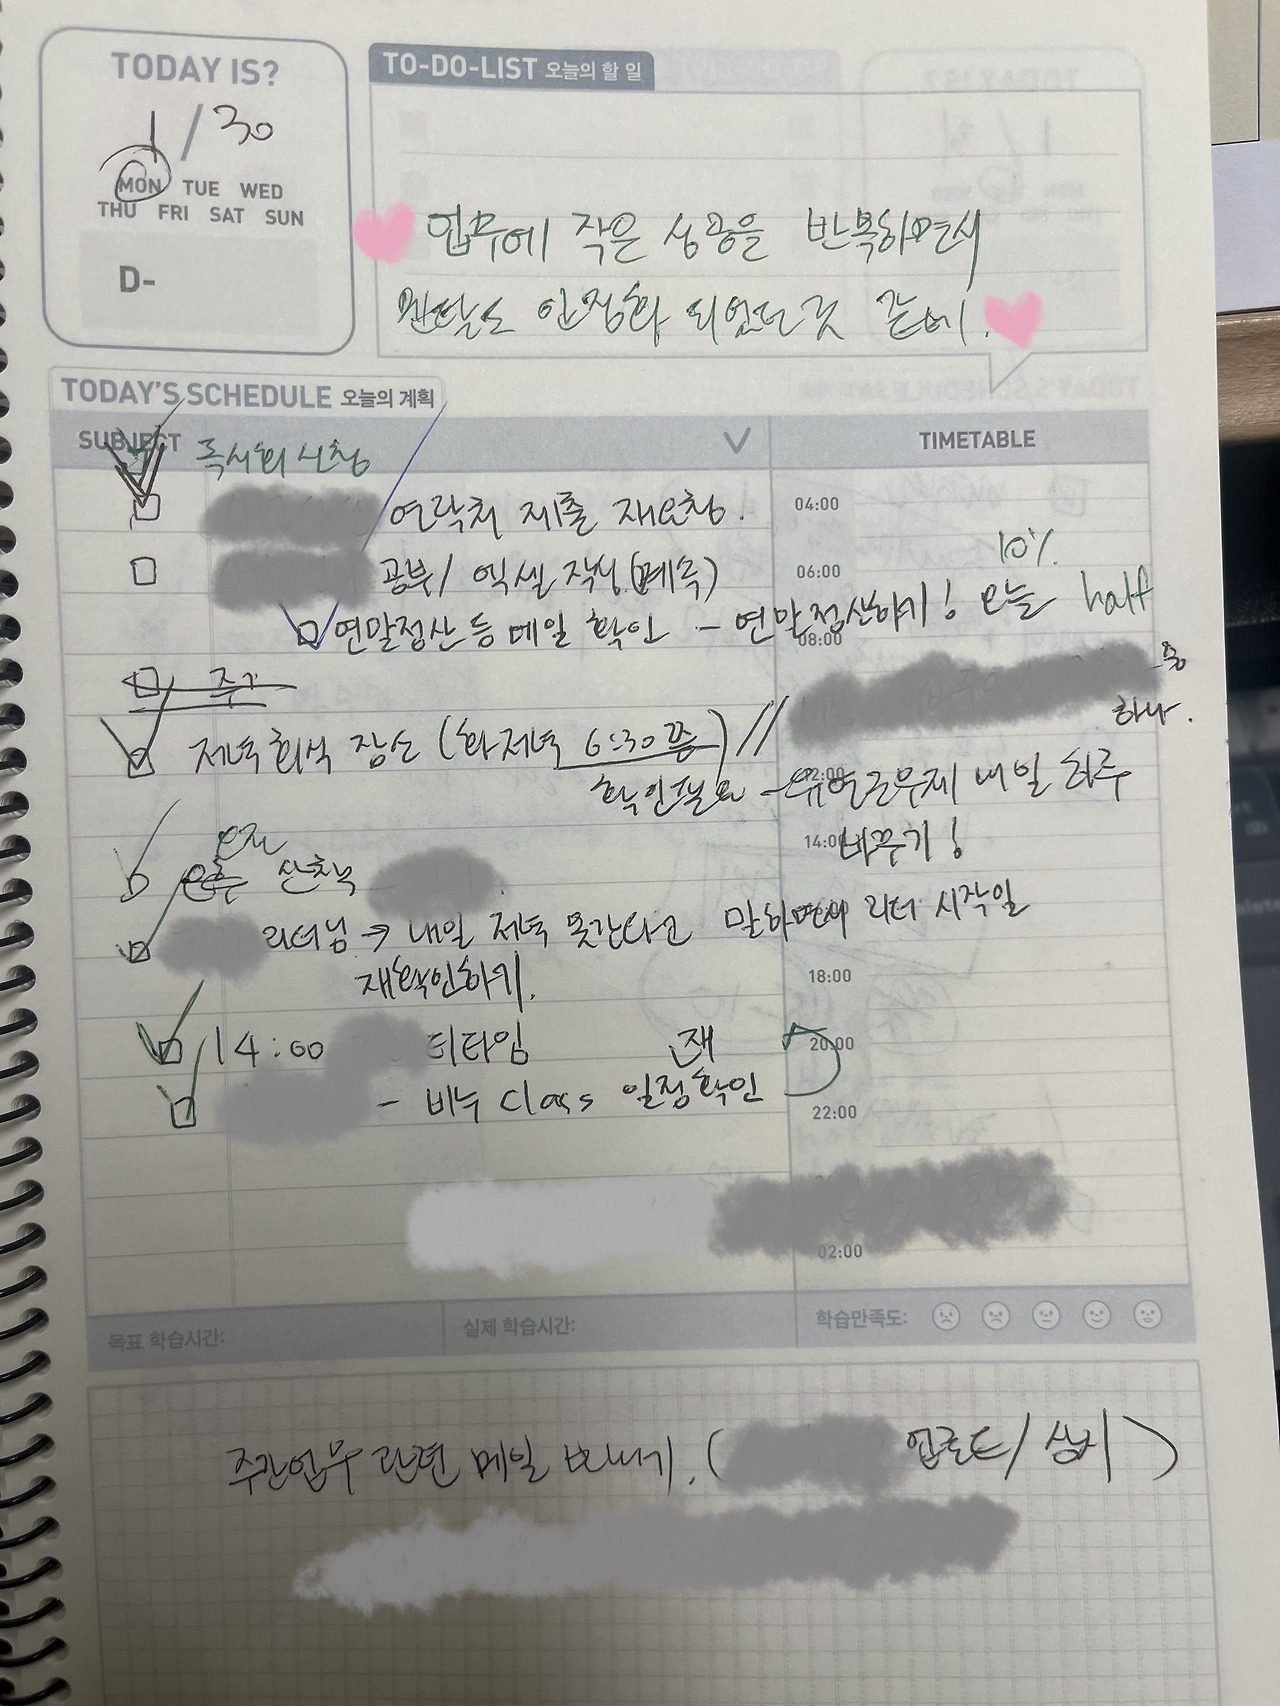 TODAY IS?
1/30
MON TUE WED
THU FRI SAT SUN
D-
TO-DO-LIST 오늘의 할 일
업무에 작은 성공을 반복하면서
멘탈도 안정화 되었던 것 같네.
TODAY'S SCHEDULE 오늘의 계획
SUBJECT
TIMETABLE
독서회 신청
연락처 제출 재요청.
04:00
공부/ 엑셀 작성(계속)
06:00
10%
연말정산 등 메일 확인 - 연말정산하기! 오늘 half
08:00
추가
중
하나.
저녁 회식 장소 (화 저녁 6:30쯤) //
12:00
확인필요 - 유연근무제 내일 하루
14:00
바꾸기!
오전
오후 산책
리더님 → 내일 저녁 못간다고 말하면서 리더 시작일
재확인하기.
18:00
14:00 티타임
재
20:00
- 비누 class 일정확인
22:00
02:00
목표 학습시간:
실제 학습시간:
학습만족도:
주간업무 관련 메일 보내기. ( 업로드/